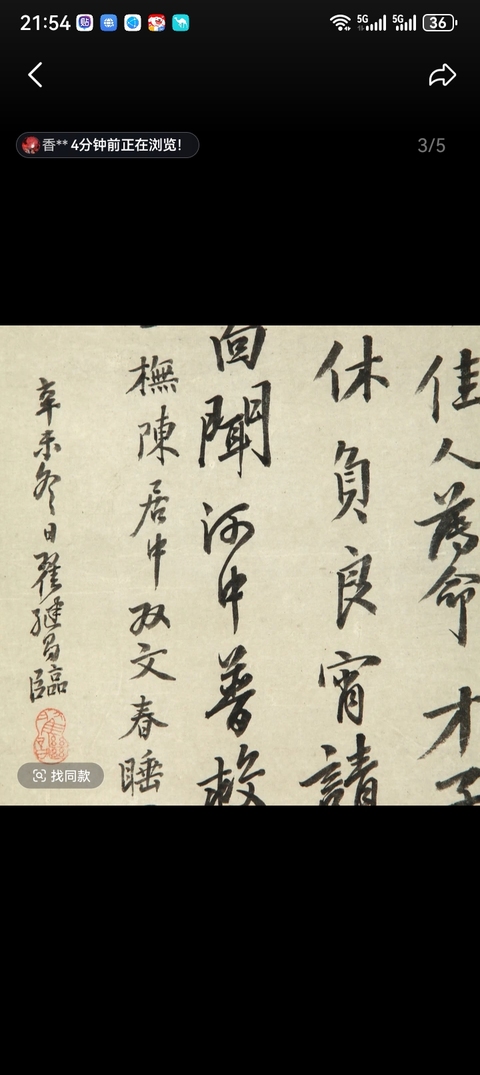 21:54
5G
5G
36
香** 4分钟前正在浏览！
3/5
佳人薄命才子
休負良宵請
回聞河中普救
橅陳居中双文春睡
辛未冬日翟繼昌臨
找同款